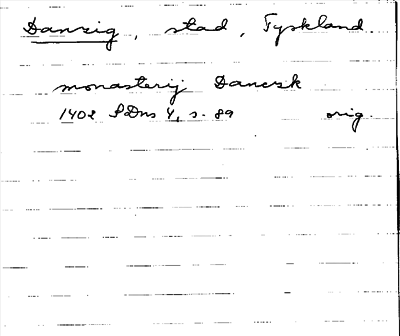 Danzig, stad, Tyskland
monasterij Danczk
1402 SDns 4, s. 89 orig.